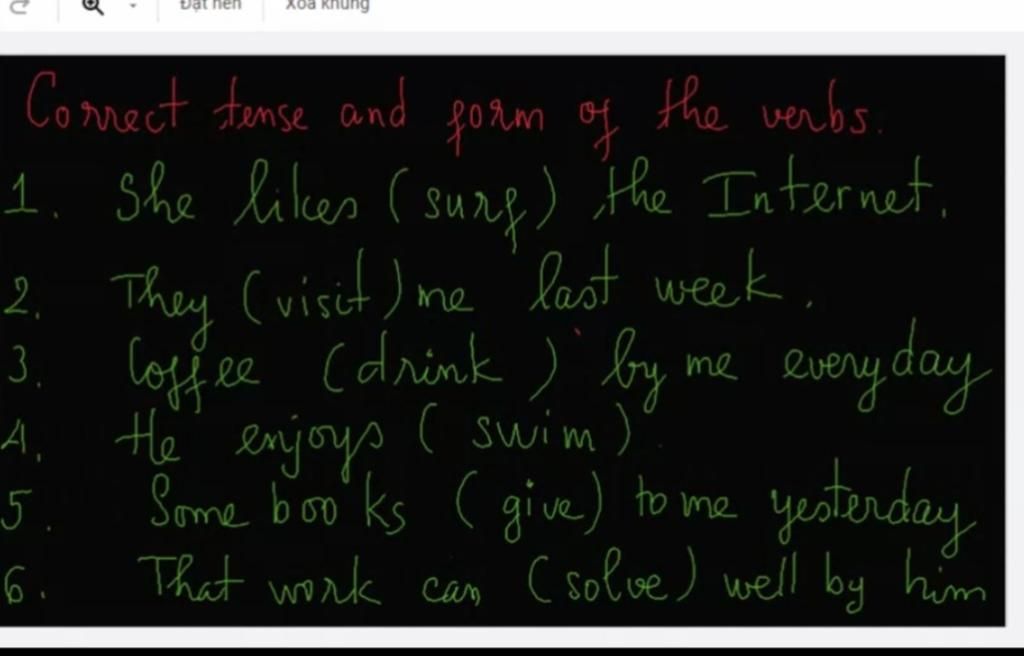 Đặt nền Xóa khung
Correct tense and form of the verbs.
1. She likes (surf) the Internet.
2. They (visit) me last week.
3. Coffee (drink) by me everyday
4. He enjoys (swim).
5. Some books (give) to me yesterday
6. That work can (solve) well by him